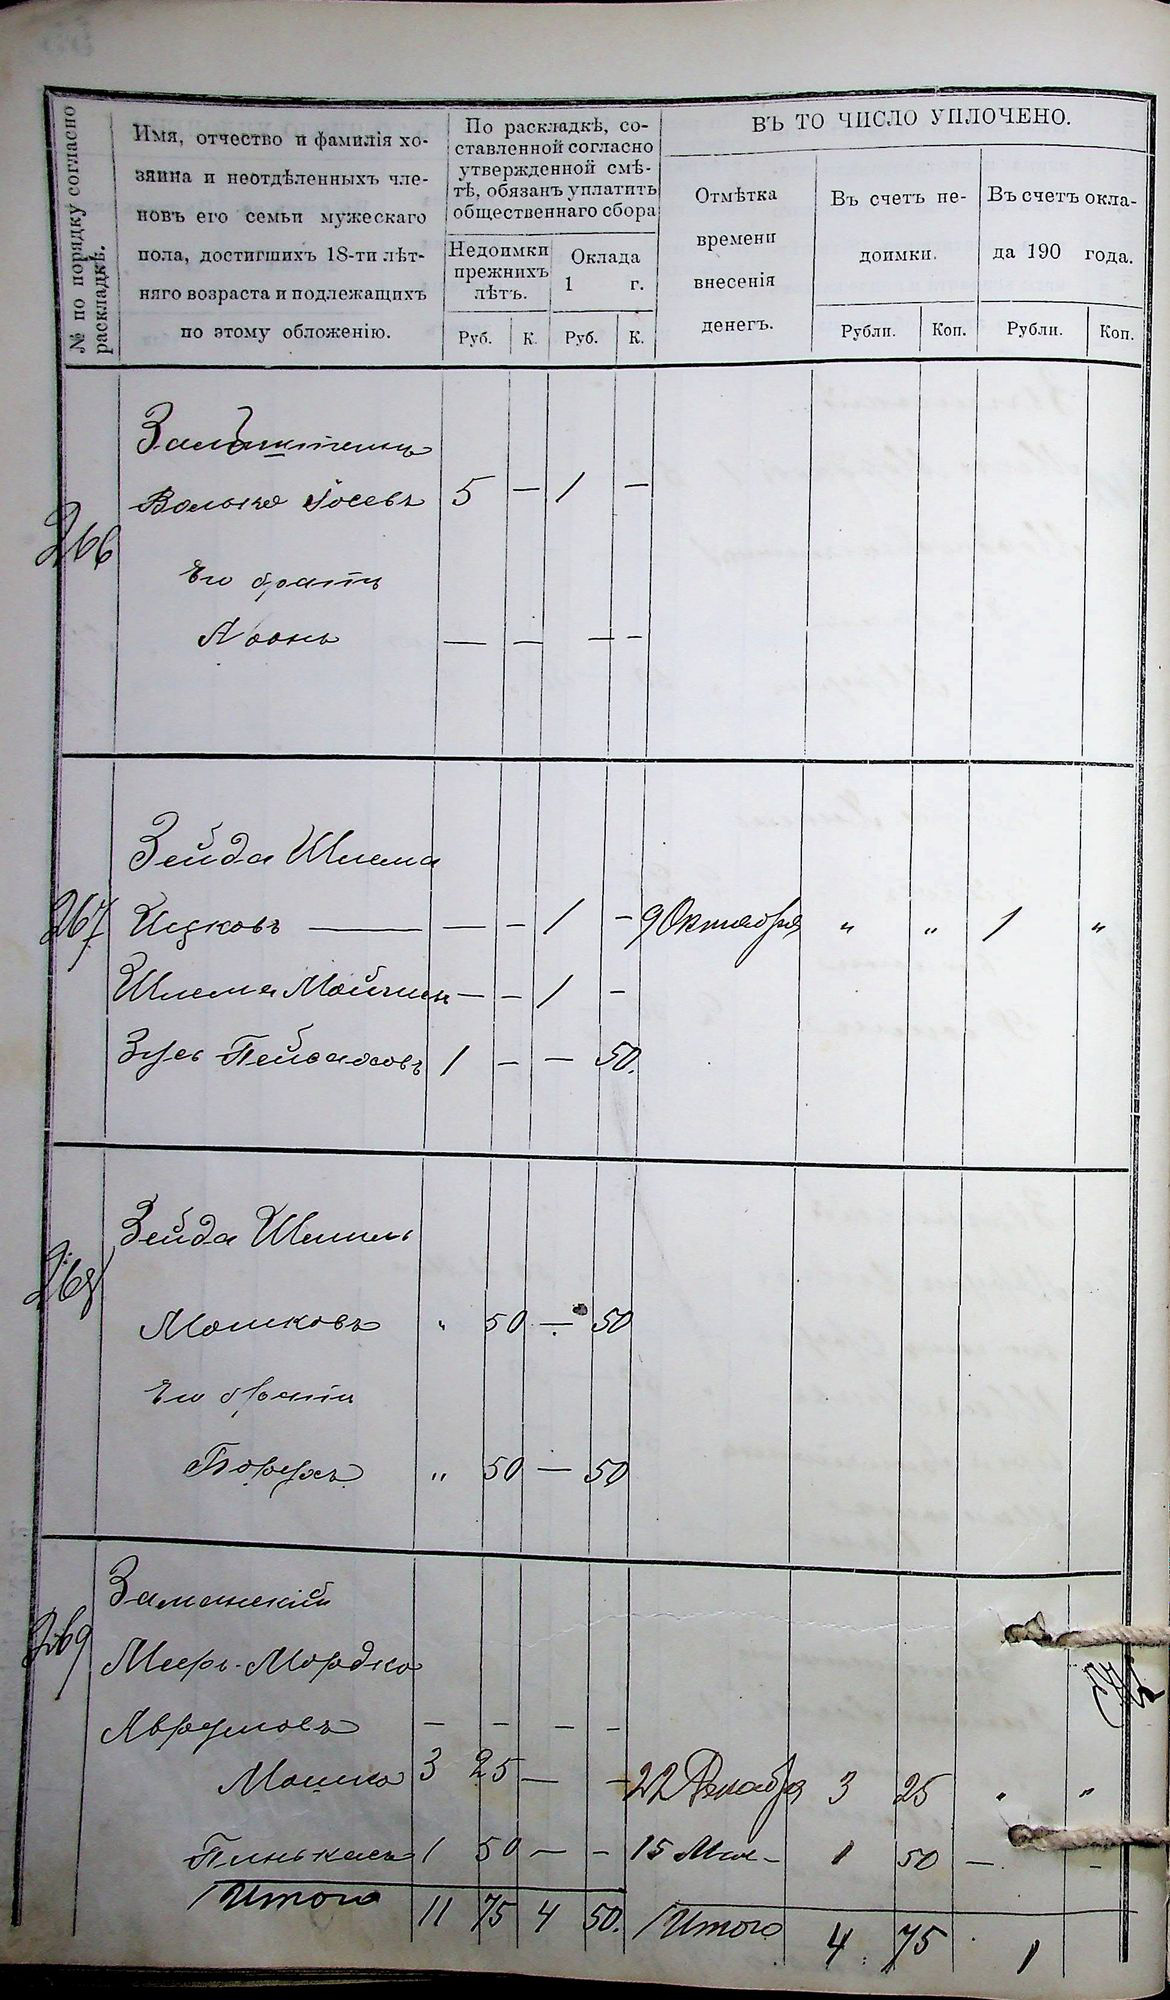 № по порядку согласно
раскладкѣ.
Имя, отчество и фамилія хо-
зяина и неотдѣленныхъ чле-
новъ его семьи мужескаго
пола, достигшихъ 18-ти лѣт-
няго возраста и подлежащихъ
по этому обложенію.
По раскладкѣ, со-
ставленной согласно
утвержденной смѣ-
тѣ, обязанъ уплатить
общественнаго сбора
Недоимки
прежнихъ
лѣтъ.
Оклада
1 г.
Руб. К. Руб. К.
ВЪ ТО ЧИСЛО УПЛОЧЕНО.
Отмѣтка
времени
внесенія
денегъ.
Въ счетъ не-
доимки.
Рубли. Коп.
Въ счетъ окла-
да 190 года.
Рубли. Коп.
266
Волько Іосевъ 5 — 1 —
Его братъ
Аронъ — — — —
Зейда Шлема
267 Ицковъ — — — 1 — 9 Октября " " 1 "
Шлема Мойшинъ — — 1 —
Зусь Пейсаховъ 1 — — 50.
268 Зейда Шмиль
Мошковъ " 50 — 50
Его братъ
Борухъ " 50 — 50
Заманскій
269 Мееръ-Мордко
Аврумовъ — — — —
Мошко 3 25 — — 22 Декабря 3 25 " "
Пинькасъ 1 50 — — 15 Мая — 1 50 — —
Итого 11 75 4 50. Итого 4 75 1